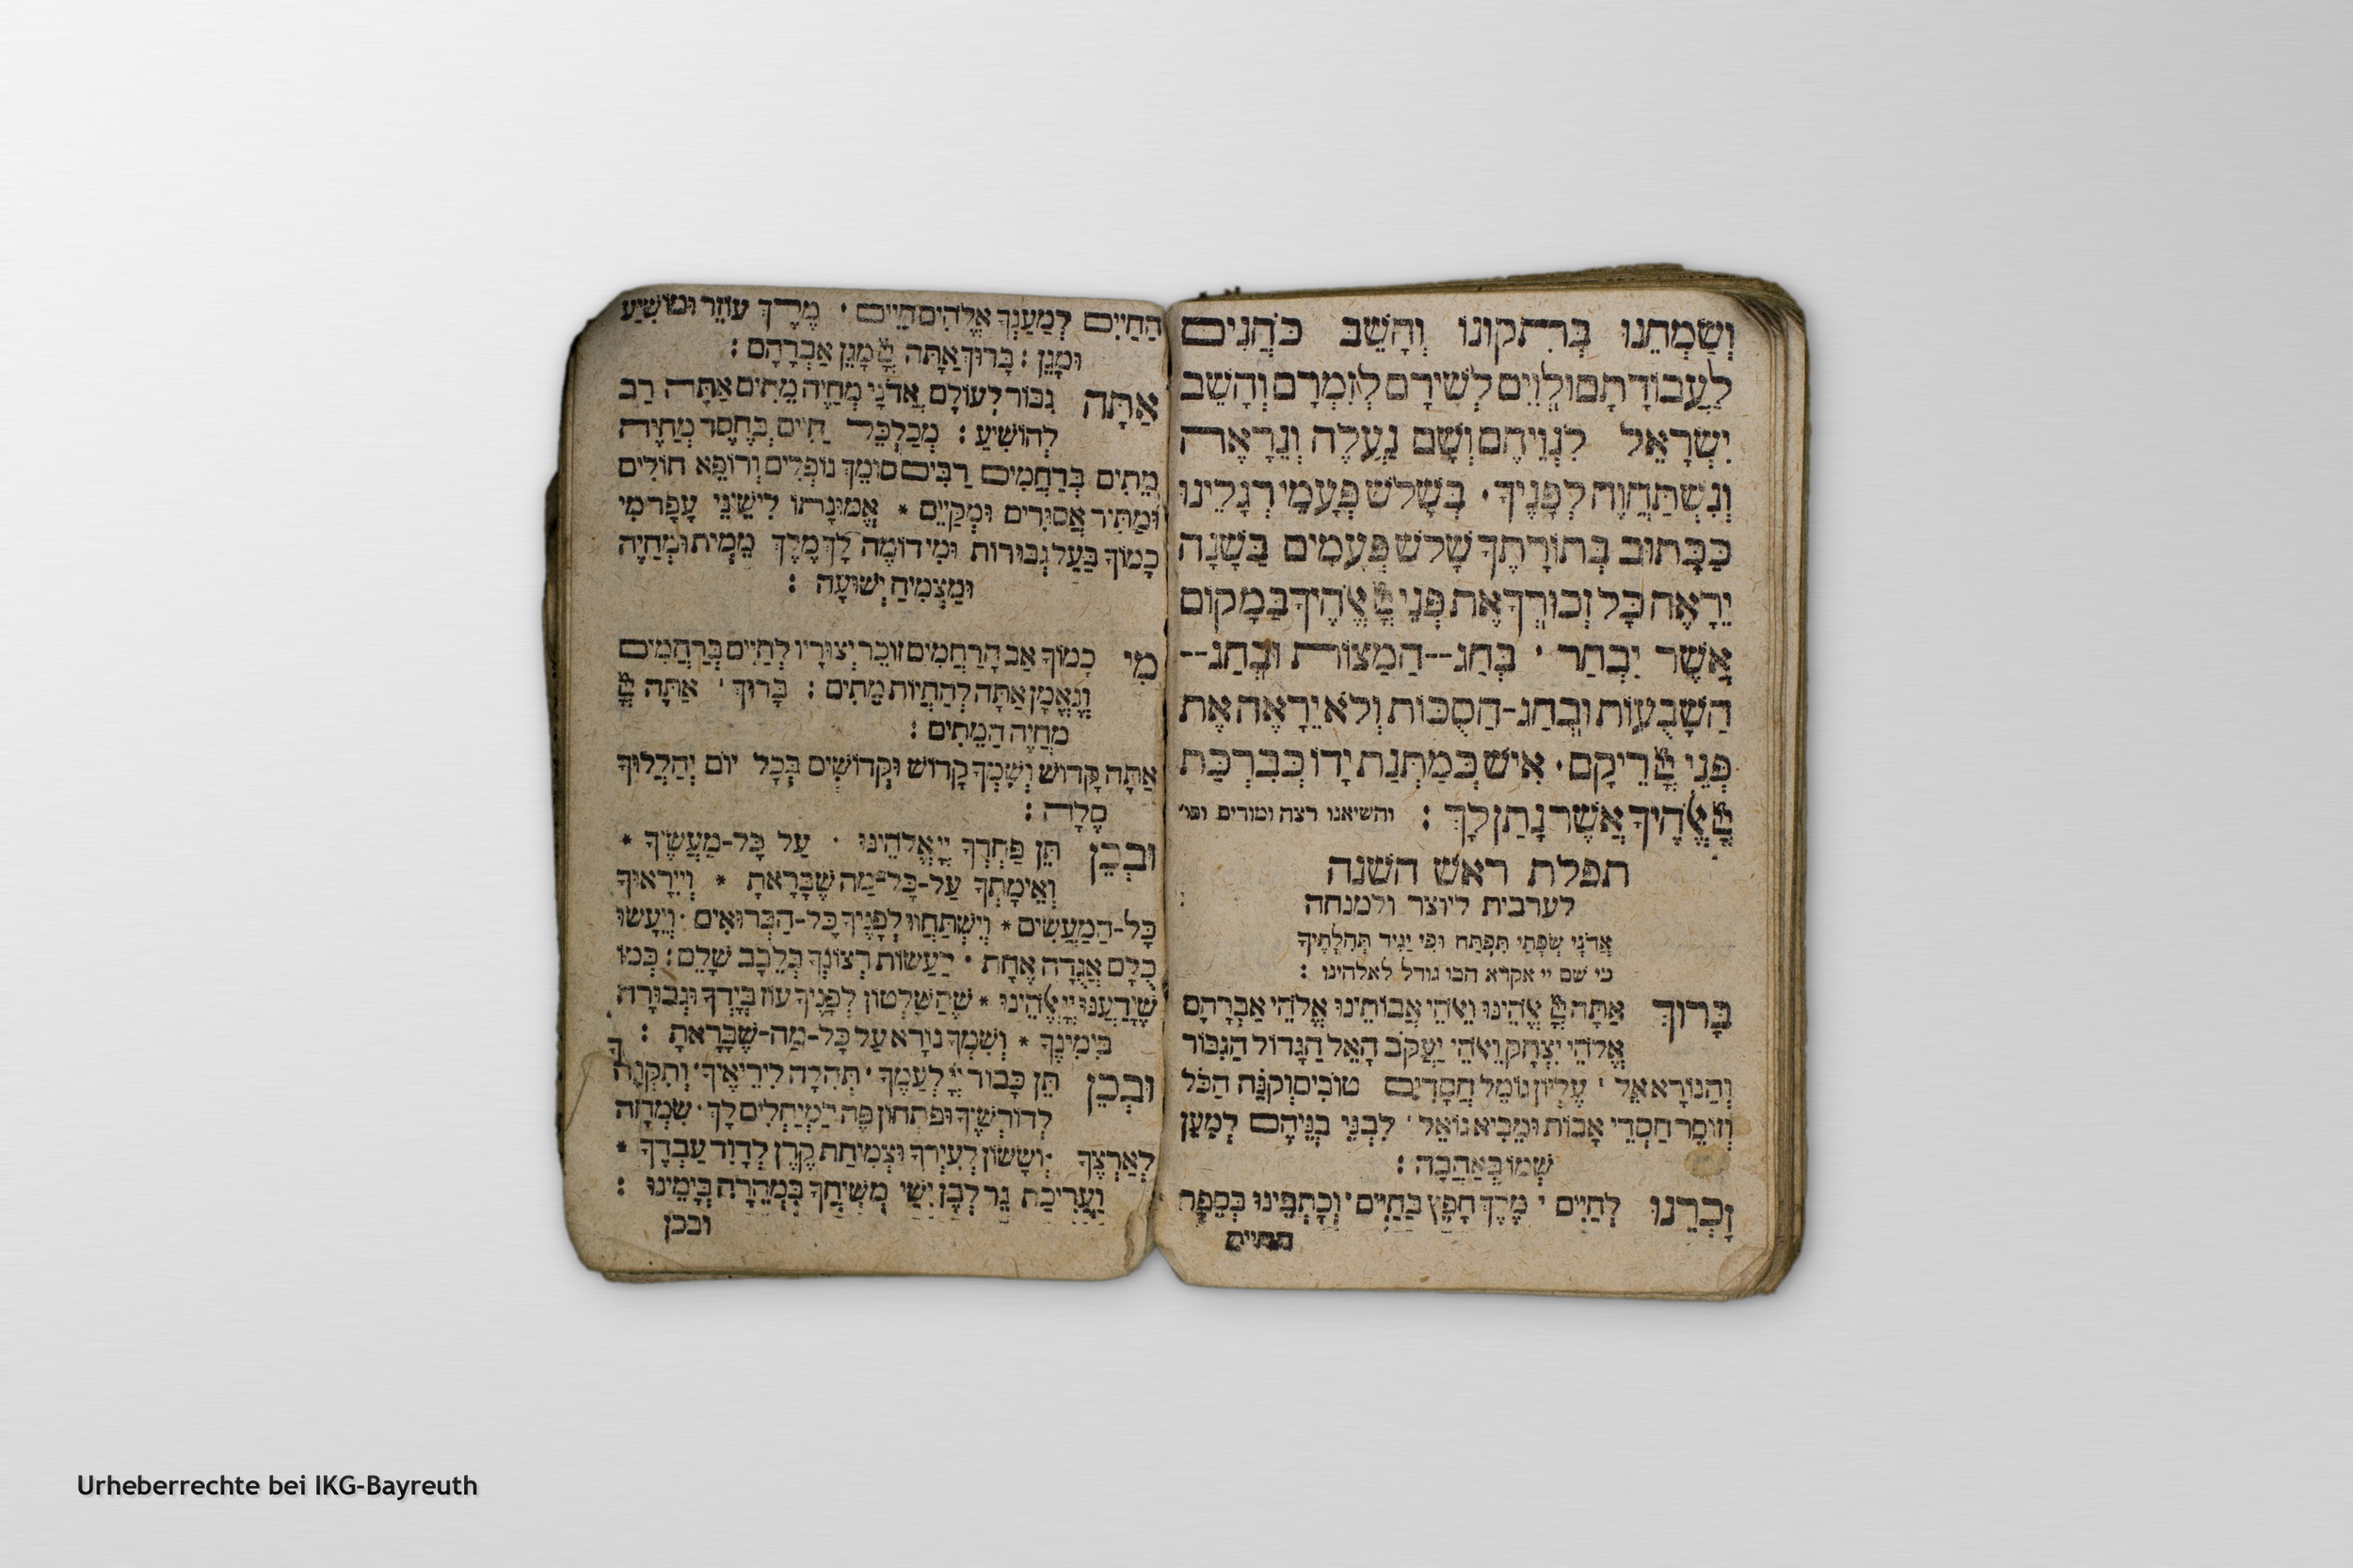 וְשַׂמְּחֵנוּ בְּתִקּוּנוֹ וְהָשֵׁב כֹּהֲנִים
לַעֲבוֹדָתָם וּלְוִיִּם לְשִׁירָם לְזִמְרָם וְהָשֵׁב
יִשְׂרָאֵל לִנְוֵיהֶם וְשָׁם נַעֲלֶה וְנֵרָאֶה
וְנִשְׁתַּחֲוֶה לְפָנֶיךָ · בְּשָׁלֹשׁ פַּעֲמֵי רְגָלֵינוּ
כַּכָּתוּב בְּתוֹרָתֶךָ שָׁלֹשׁ פְּעָמִים בַּשָּׁנָה
יֵרָאֶה כָּל זְכוּרְךָ אֶת פְּנֵי יְיָ אֱלֹהֶיךָ בַּמָּקוֹם
אֲשֶׁר יִבְחַר · בְּחַג--הַמַּצּוֹת וּבְחַג--
הַשָּׁבֻעוֹת וּבְחַג-הַסֻּכּוֹת וְלֹא יֵרָאֶה אֶת
פְּנֵי יְיָ רֵיקָם · אִישׁ כְּמַתְּנַת יָדוֹ כְּבִרְכַּת
יְיָ אֱלֹהֶיךָ אֲשֶׁר נָתַן לָךְ : והשיאנו רצה ומודים וכו'
תפלת ראש השנה
לערבית ליוצר ולמנחה
אֲדֹנָי שְׂפָתַי תִּפְתָּח וּפִי יַגִּיד תְּהִלָּתֶיךָ
כי שם יי אקרא הבו גודל לאלהינו :
בָּרוּךְ אַתָּה יְיָ אֱלֹהֵינוּ וֵאלֹהֵי אֲבוֹתֵינוּ אֱלֹהֵי אַבְרָהָם
אֱלֹהֵי יִצְחָק וֵאלֹהֵי יַעֲקֹב הָאֵל הַגָּדוֹל הַגִּבּוֹר
וְהַנּוֹרָא אֵל · עֶלְיוֹן גּוֹמֵל חֲסָדִים טוֹבִים וְקֹנֵה הַכֹּל
וְזוֹכֵר חַסְדֵי אָבוֹת וּמֵבִיא גוֹאֵל · לִבְנֵי בְנֵיהֶם לְמַעַן
שְׁמוֹ בְּאַהֲבָה :
זָכְרֵנוּ לְחַיִּים · מֶלֶךְ חָפֵץ בַּחַיִּים · וְכָתְבֵינוּ בְּסֵפֶר
החיים
הַחַיִּים לְמַעַנְךָ אֱלֹהִים חַיִּים · מֶלֶךְ עוֹזֵר וּמוֹשִׁיעַ
וּמָגֵן : בָּרוּךְ אַתָּה יְיָ מָגֵן אַבְרָהָם :
אַתָּה גִבּוֹר לְעוֹלָם אֲדֹנָי מְחַיֵּה מֵתִים אַתָּה רַב
לְהוֹשִׁיעַ : מְכַלְכֵּל חַיִּים בְּחֶסֶד מְחַיֵּה
מֵתִים בְּרַחֲמִים רַבִּים סוֹמֵךְ נוֹפְלִים וְרוֹפֵא חוֹלִים
וּמַתִּיר אֲסוּרִים וּמְקַיֵּים * אֱמוּנָתוֹ לִישֵׁנֵי עָפָר מִי
כָמוֹךָ בַּעַל גְּבוּרוֹת וּמִי דוֹמֶה לָּךְ מֶלֶךְ מֵמִית וּמְחַיֶּה
וּמַצְמִיחַ יְשׁוּעָה :
מִי כָמוֹךָ אַב הָרַחֲמִים זוֹכֵר יְצוּרָיו לְחַיִּים בְּרַחֲמִים
וְנֶאֱמָן אַתָּה לְהַחֲיוֹת מֵתִים : בָּרוּךְ · אַתָּה יְיָ
מְחַיֵּה הַמֵּתִים :
אַתָּה קָדוֹשׁ וְשִׁמְךָ קָדוֹשׁ וּקְדוֹשִׁים בְּכָל יוֹם יְהַלְלוּךָ
סֶלָה :
וּבְכֵן תֵּן פַּחְדְּךָ יְיָ אֱלֹהֵינוּ · עַל כָּל-מַעֲשֶׂיךָ *
וְאֵימָתְךָ עַל-כָּל-מַה שֶּׁבָּרָאתָ * וְיִירָאוּךָ
כָּל-הַמַּעֲשִׂים * וְיִשְׁתַּחֲווּ לְפָנֶיךָ כָּל-הַבְּרוּאִים · וְיֵעָשׂוּ
כֻלָּם אֲגֻדָּה אֶחָת · לַעֲשׂוֹת רְצוֹנְךָ בְּלֵבָב שָׁלֵם : כְּמוֹ
שֶׁיָּדַעְנוּ יְיָ אֱלֹהֵינוּ * שֶׁהַשִּׁלְטוֹן לְפָנֶיךָ עוֹז בְּיָדְךָ וּגְבוּרָה
בִּימִינֶךָ * וְשִׁמְךָ נוֹרָא עַל כָּל-מַה-שֶּׁבָּרָאתָ :
וּבְכֵן תֵּן כָּבוֹד יְיָ לְעַמֶּךָ · תְּהִלָּה לִירֵיאֶיךָ · וְתִקְוָה
לְדוֹרְשֶׁיךָ וּפִתְחוֹן פֶּה לַמְיַחֲלִים לָךְ · שִׂמְחָה
לְאַרְצֶךָ · וְשָׂשׂוֹן לְעִירֶךָ וּצְמִיחַת קֶרֶן לְדָוִד עַבְדֶּךָ *
וַעֲרִיכַת נֵר לְבֶן יִשַׁי מְשִׁיחֶךָ בִּמְהֵרָה בְיָמֵינוּ :
ובכן
Urheberrechte bei IKG-Bayreuth